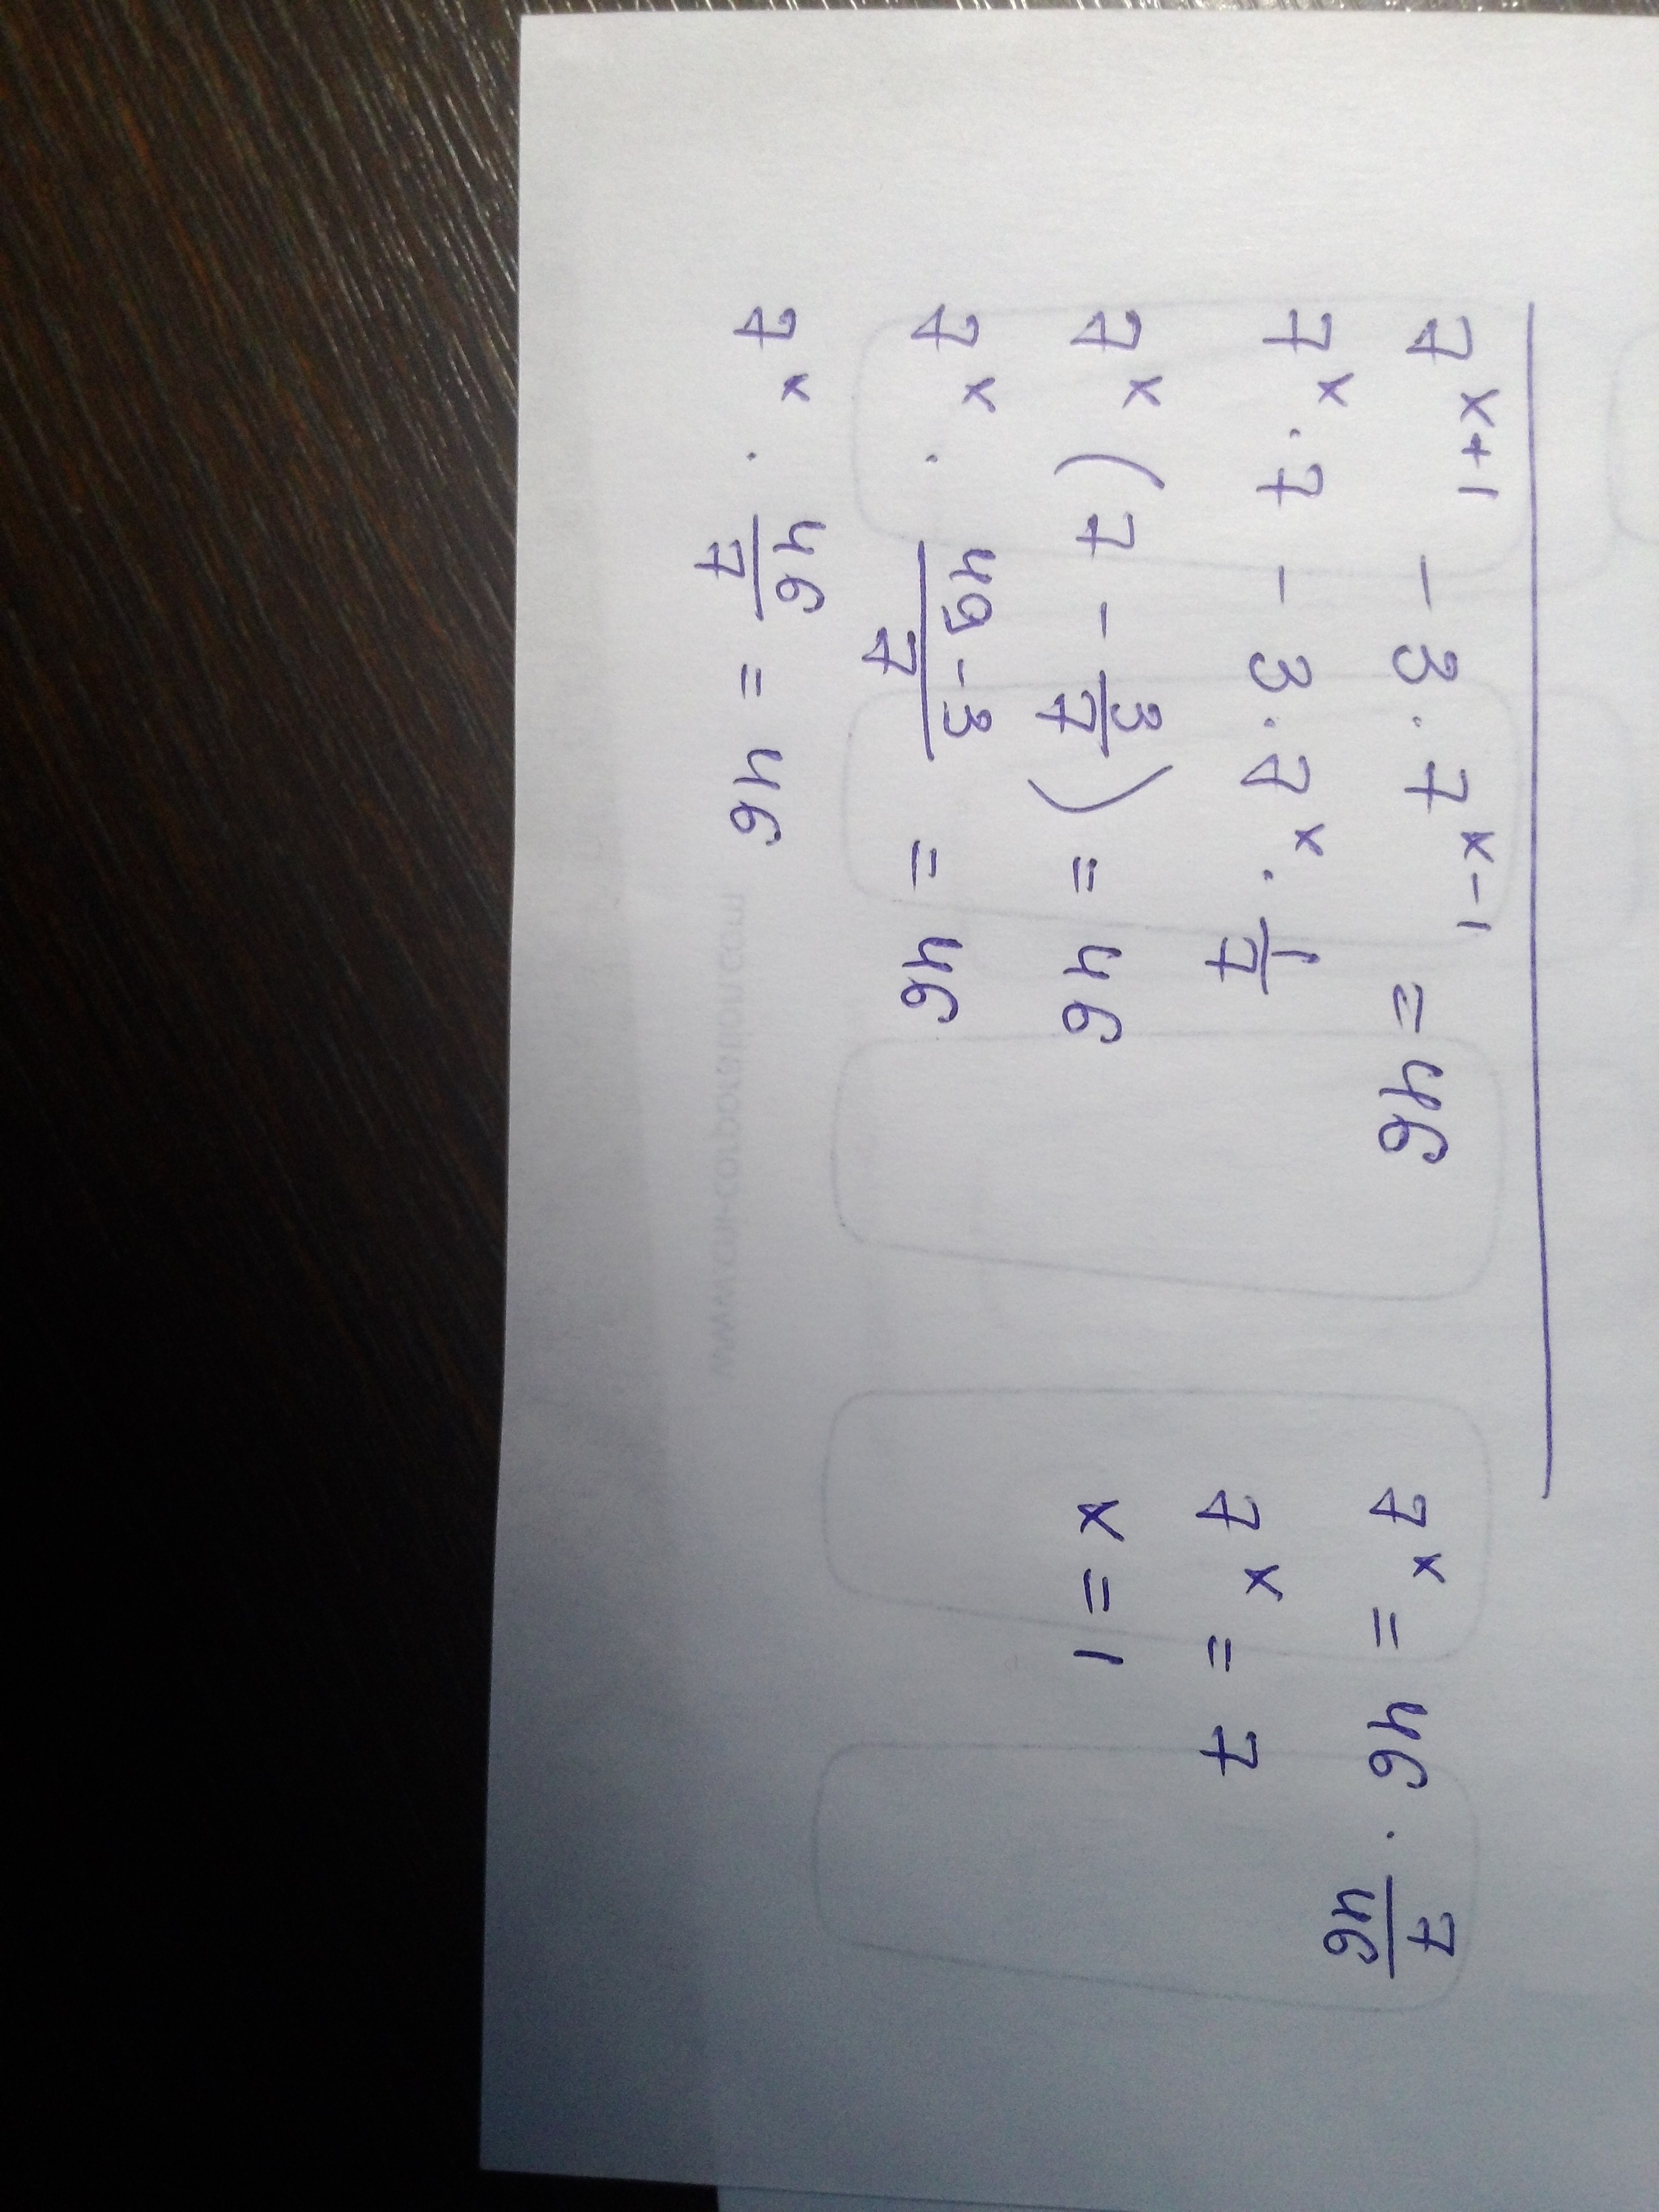 7^(x+1) - 3 · 7^(x-1) = 46
7^x · 7 - 3 · 7^x · 1/7
7^x (7 - 3/7) = 46
7^x · (49-3)/7 = 46
7^x · 46/7 = 46
7^x = 46 · 7/46
7^x = 7
x = 1